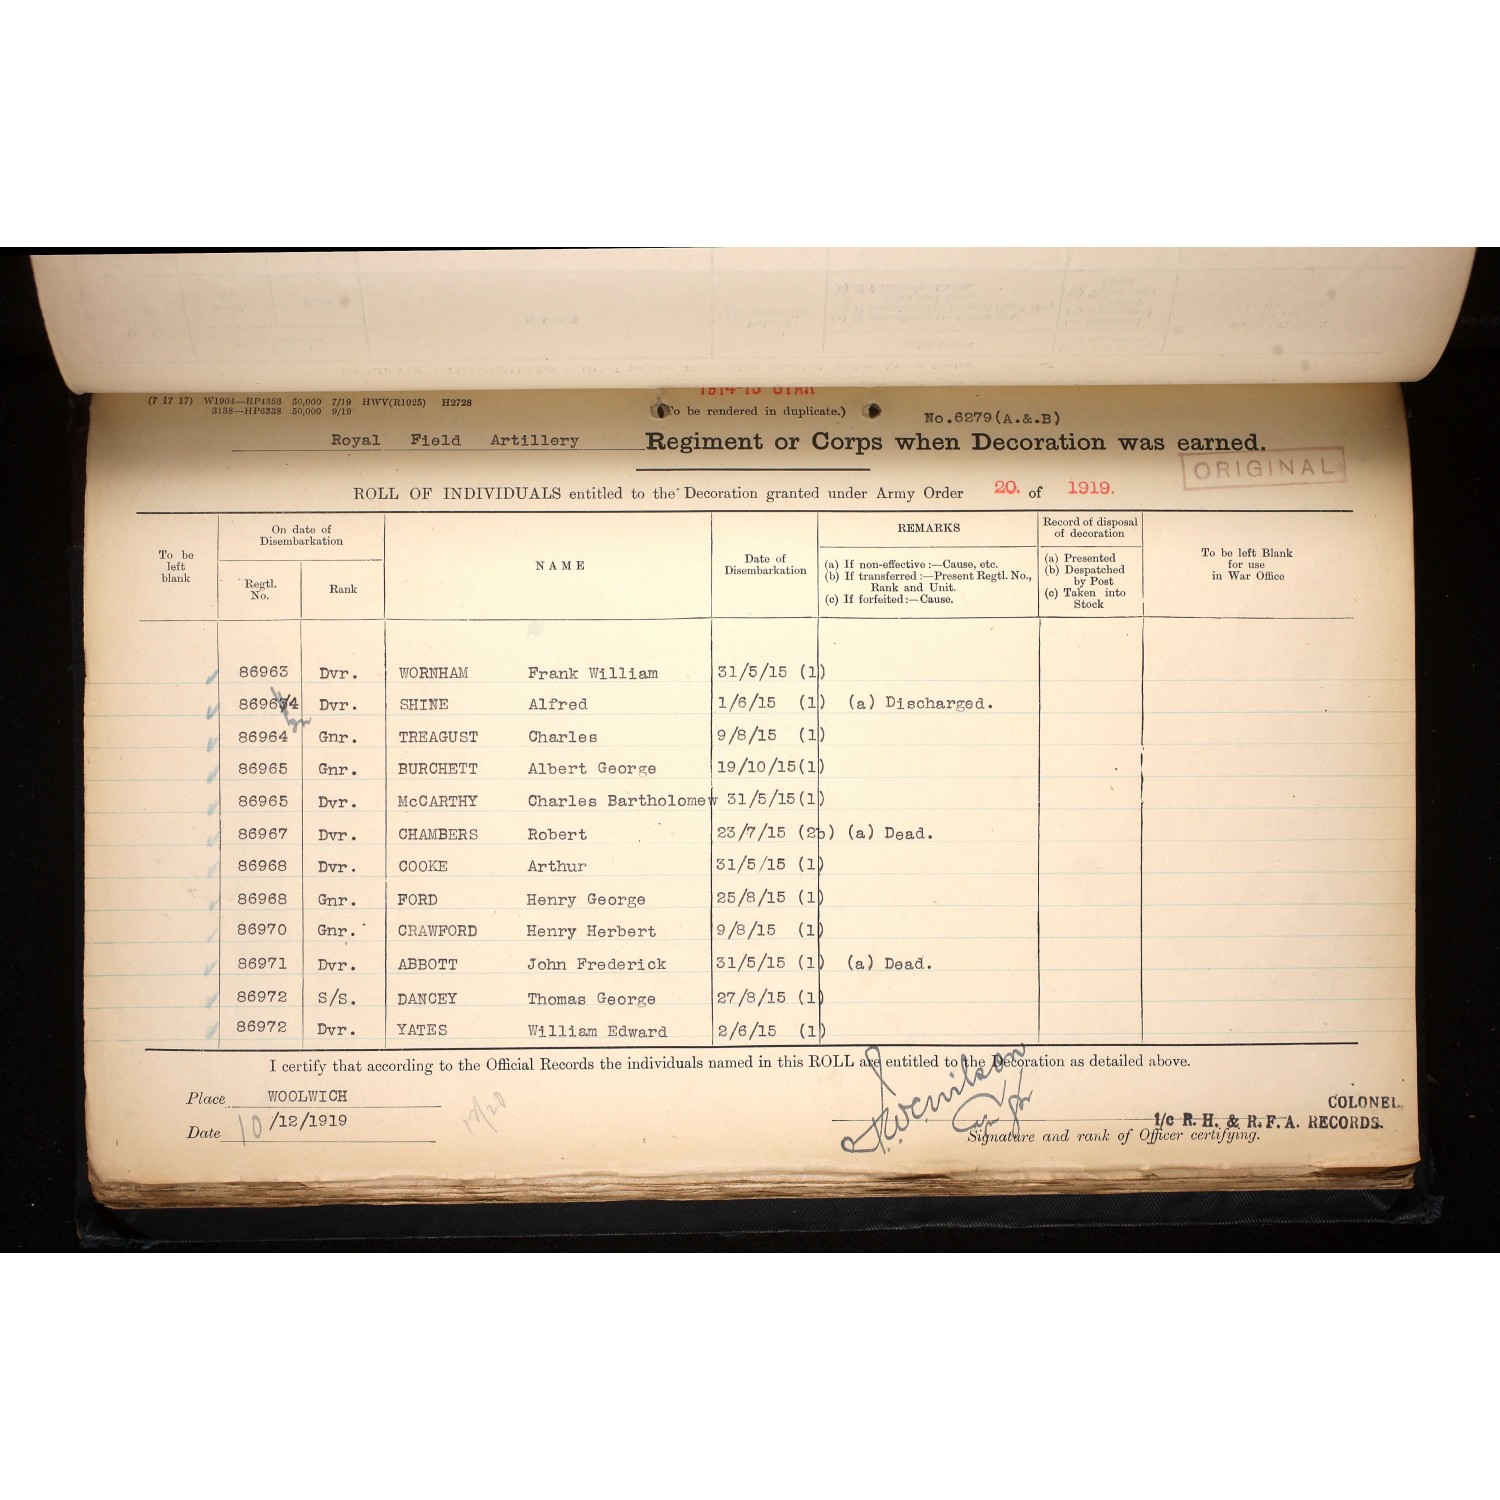 (7 17 17) W1904—RP4353 50,000 7/19 HWV(R1025) H2728
3138—HP6338 50,000 9/19
1914-15 STAR
(To be rendered in duplicate.)
No.6279(A.&.B)
Royal Field Artillery Regiment or Corps when Decoration was earned.
ORIGINAL
ROLL OF INDIVIDUALS entitled to the Decoration granted under Army Order 20. of 1919.
To be left blank
On date of Disembarkation
Regtl. No.
Rank
NAME
Date of Disembarkation
REMARKS
(a) If non-effective:—Cause, etc.
(b) If transferred:—Present Regtl. No., Rank and Unit.
(c) If forfeited:—Cause.
Record of disposal of decoration
(a) Presented
(b) Despatched by Post
(c) Taken into Stock
To be left Blank for use in War Office
86963 Dvr. WORNHAM Frank William 31/5/15 (1)
86964 Dvr. SHINE Alfred 1/6/15 (1) (a) Discharged.
86964 Gnr. TREAGUST Charles 9/8/15 (1)
86965 Gnr. BURCHETT Albert George 19/10/15(1)
86965 Dvr. McCARTHY Charles Bartholomew 31/5/15(1)
86967 Dvr. CHAMBERS Robert 23/7/15 (2b) (a) Dead.
86968 Dvr. COOKE Arthur 31/5/15 (1)
86968 Gnr. FORD Henry George 25/8/15 (1)
86970 Gnr. CRAWFORD Henry Herbert 9/8/15 (1)
86971 Dvr. ABBOTT John Frederick 31/5/15 (1) (a) Dead.
86972 S/S. DANCEY Thomas George 27/8/15 (1)
86972 Dvr. YATES William Edward 2/6/15 (1)
I certify that according to the Official Records the individuals named in this ROLL are entitled to the Decoration as detailed above.
Place WOOLWICH
Date 10/12/1919
COLONEL.
I/c R. H. & R. F. A. RECORDS.
Signature and rank of Officer certifying.